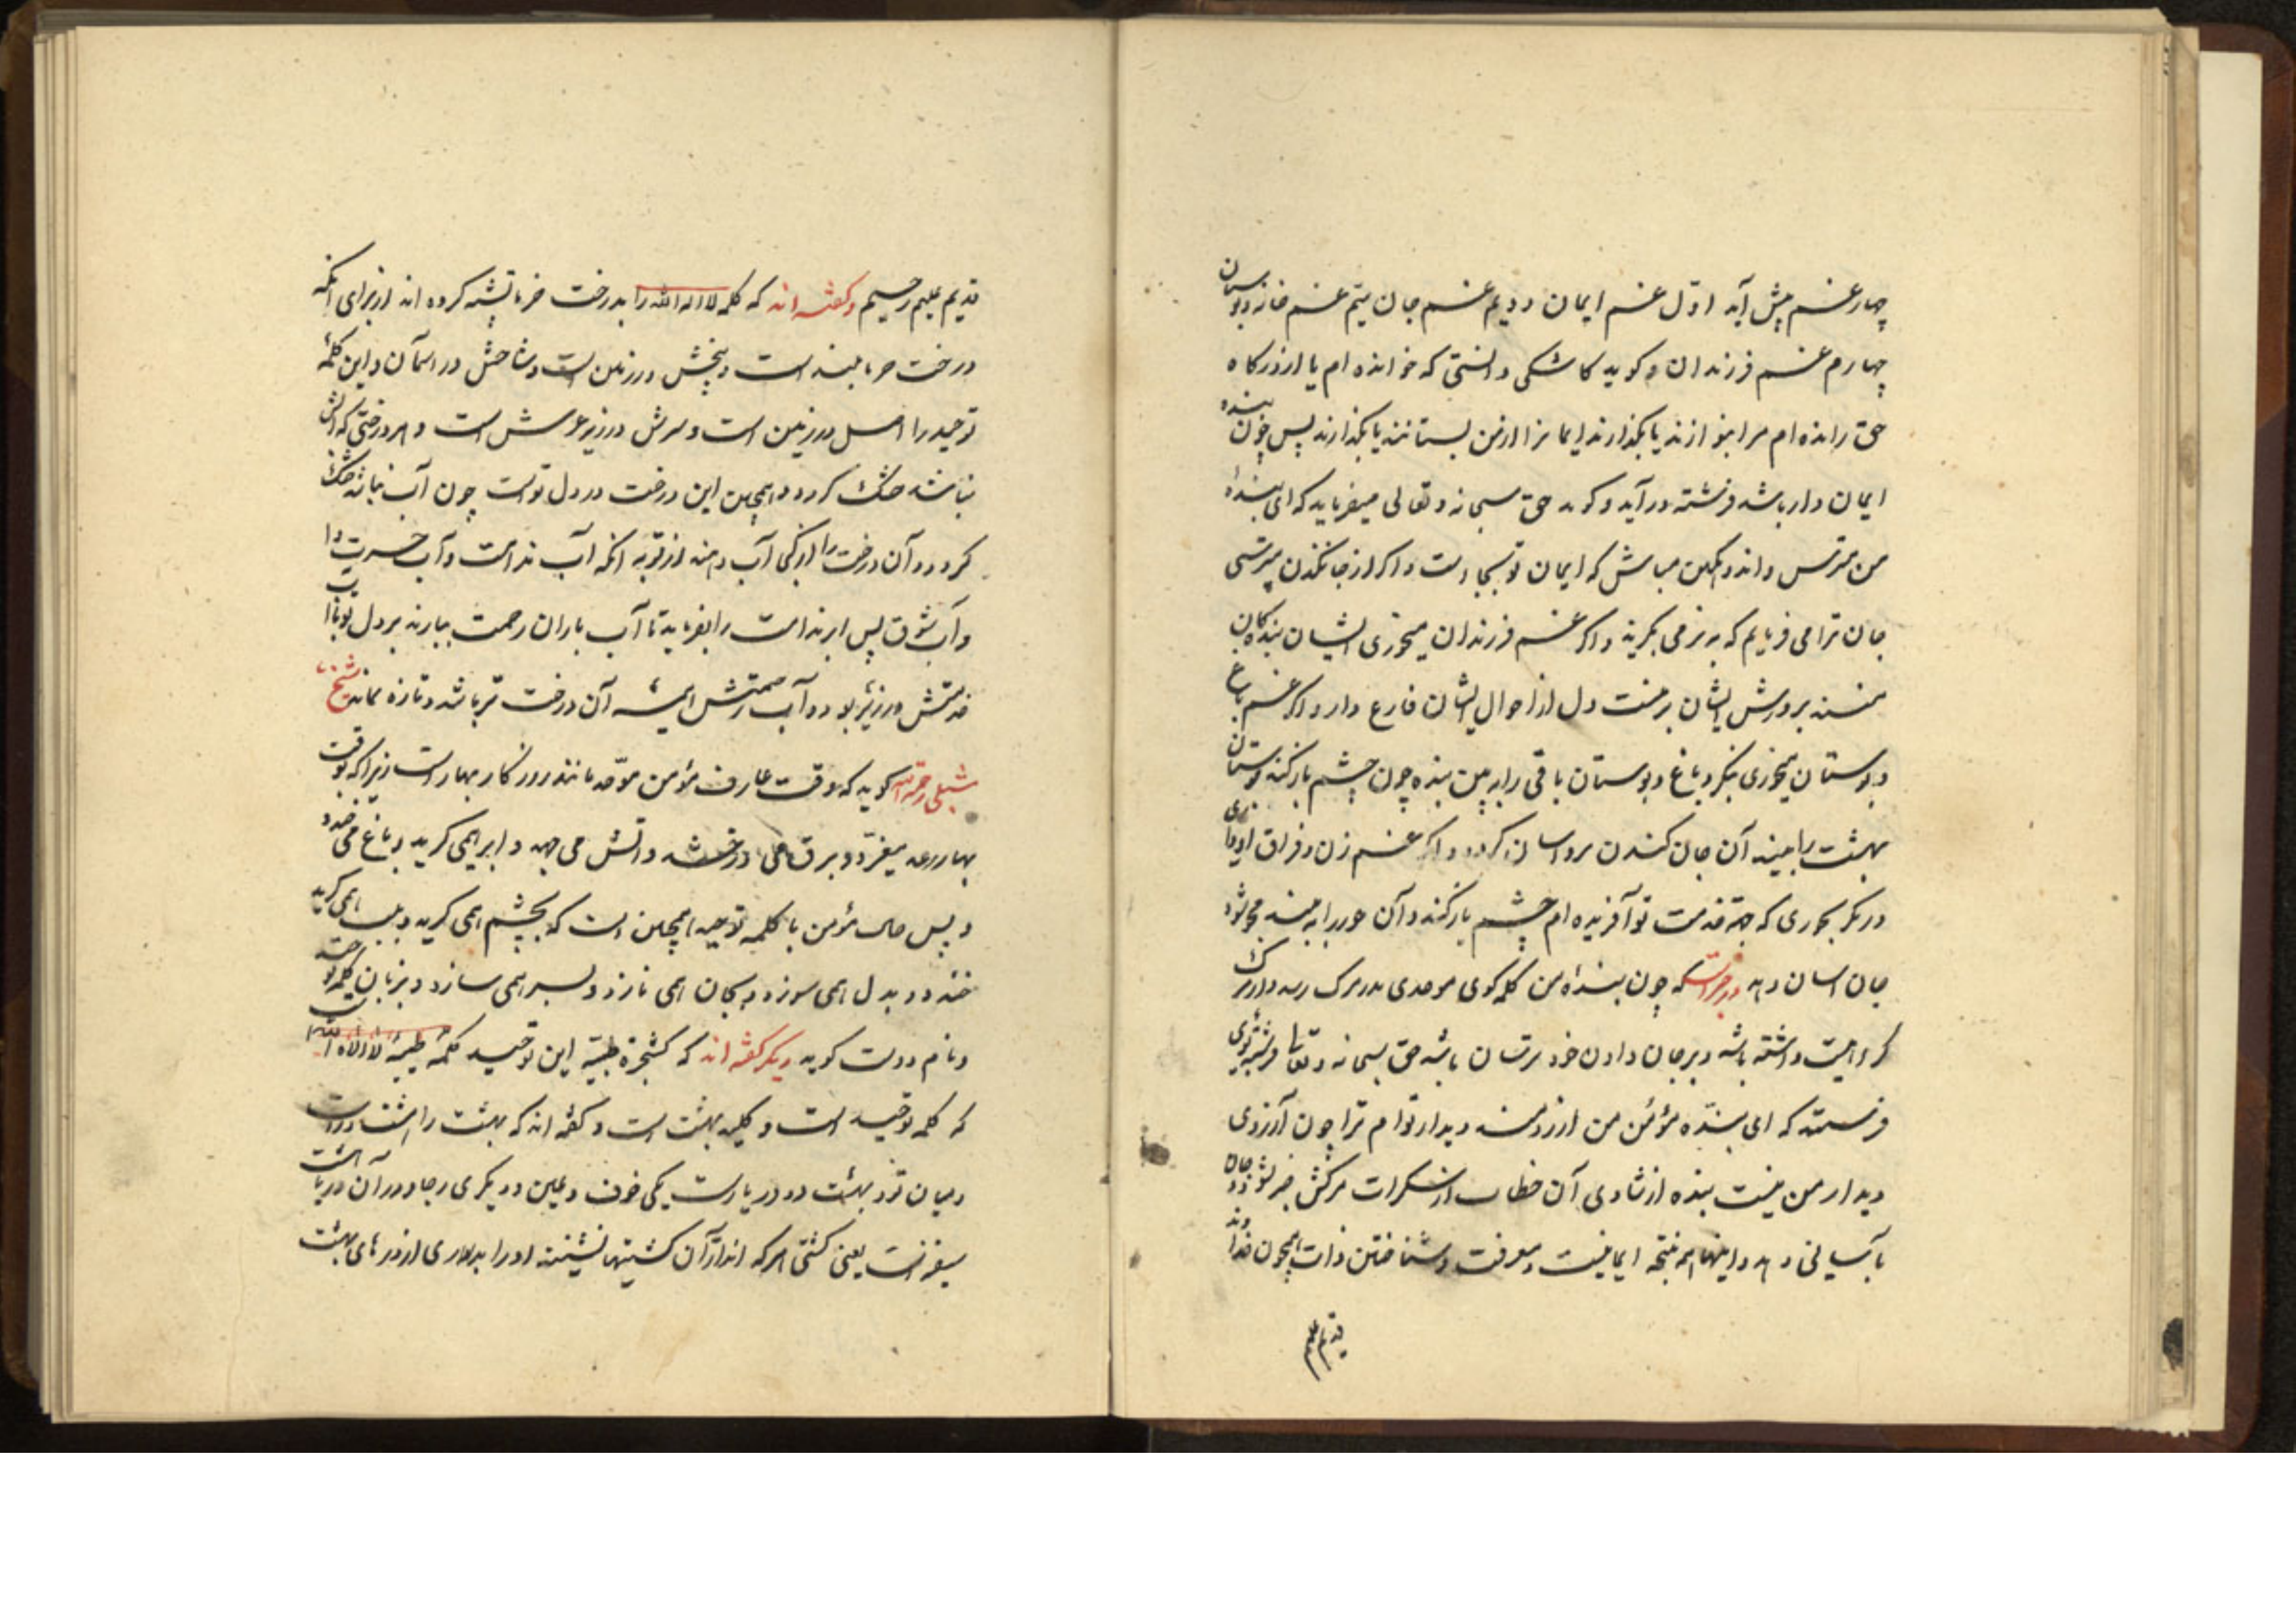 چهار غم پیش آید اوّل غم ایمان دویم غم جان سیّم غم خانه و بوستان
چهارم غم فرزندان و کوید کاشکی دانستی که خوانده ام یا از درکاه
حق رانده ام مرا بنوازند یا بکذارند ایمانرا از من بستانند یا بکذارند پس چون بنده
ایمان دار باشد فرشته در آید و کوید حق سبحانه و تعالی میفرماید که ای بنده
من مترس و اندوهکین مباش که ایمان تو بجا است و اکر از جانکندن میترسی
جان ترا می فرمایم که به نرمی بکیرند و اکر غم فرزندان میخوری ایشان بندکان
منند پرورش ایشان بر منست دل از احوال ایشان فارغ دار و اکر غم باغ
و بوستان میخوری بنکر و باغ و بوستان باقی را به بین بنده چون چشم باز کند بوستان
بهشت را بیند آن جان کندن برو اسان کردد و اکر غم زن و فراق او داری
در نکر بحوری که جهة خدمت تو آفریده ام چشم باز کند و آن حور را به بیند
جان اسان دهد در خبر است که چون بنده من کلمه کوی موحدی بدر مرک رسد و از مرک
کراهیت داشته باشد و بر جان دادن خود ترسان باشد حق سبحانه و تعالی فرشته
فرستد که ای بنده مؤمن من ارزومند دیدار توام ترا چون آرزوی
دیدار من نیست بنده از شادی آن خطاب از سکرات مرکش خبر نبود و جان
بآسانی دهد و اینها همه نتیجه ایمانیست و معرفت و شناختن ذات بیچون خداوند
قدیم علیم
قدیم علیم رحیم و کفته اند که کلمه لا اله الا الله را بدرخت خرما تشبیه کرده اند از برای انکه
درخت خرما بلند است و بیخش در زمین است و شاخش در اسمان و این کلمهٔ
توحید را اصل در زمین است و سرش در زیر عرش است و هر درختی که آبش
نباشد خشک کردد و همچنین این درخت در دل تو است چون آب نباشد خشک
کردد و آن درخت را از کی آب دهند از توبه انکه آب ندامت و آب حسرت
و آب شوق پس ابر ندامت را بفرماید تا آب باران رحمت ببارند بر دل تو تا
آن درخت تر باشد و تازه بماند شیخ
شبلی رحمة الله کوید که وقت عارف مؤمن موّحد مانند روزکار بهار است زیرا که بوقت
بهار رعد میغرّد و برق می درخشد و اتش می جهد و ابر همی کرید و باغ می خندد
و پس حال مؤمن با کلمه توحید همچنین است که بچشم همی کرید و بلب همی
خندد و بدل همی سوزد و بجان همی نازد و بسر همی سازد و بزبان کلمه توحید
و نام دوست کوید دیکر کفته اند که کشجرة طیبّة این توحید کلمهٔ طیبهٔ لا اله الا الله
که کلمه توحید است و کلید بهشت است و کفته اند که بهشت را هشت در است
و میان تو و بهشت دو دریا است یکی خوف و دیکری رجا و در آن دریا هشت
سفینه است یعنی کشتی هر که اندر آن کشتیها نشیند او را بدر از درهای بهشت